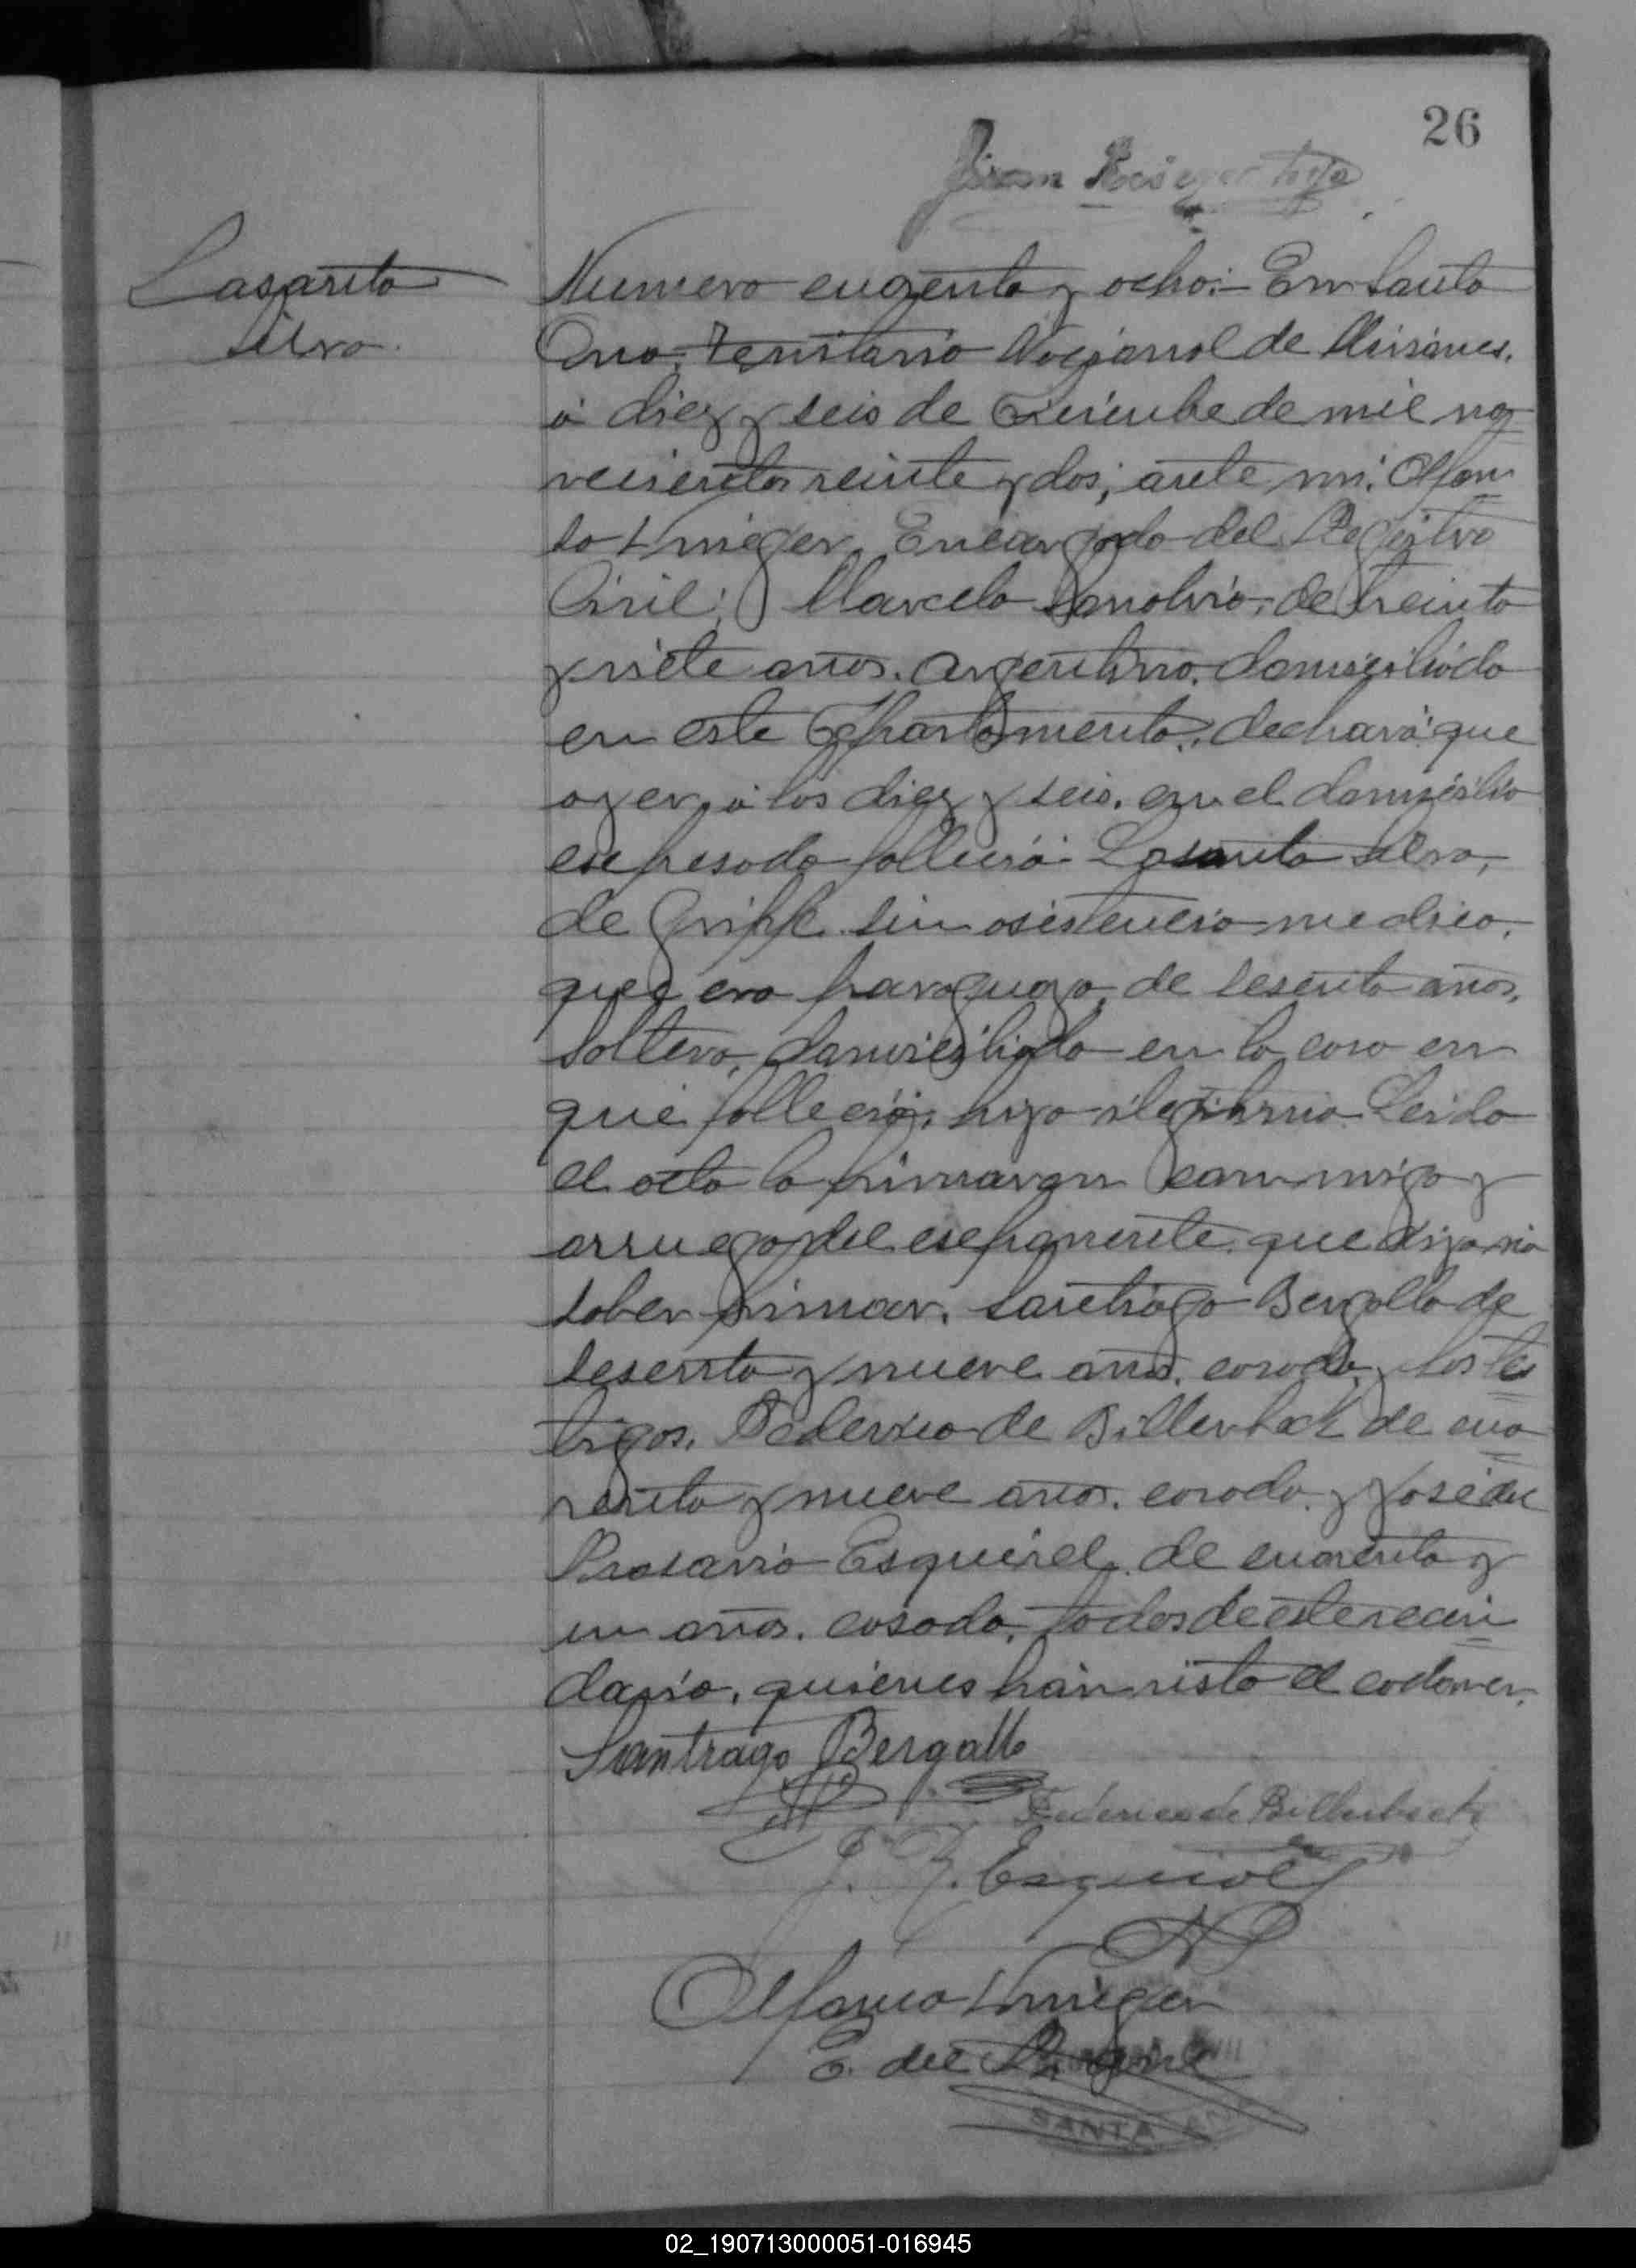 26
Juan
Lasarita
Silva.
Numero cuarenta y ocho:- En Santa
Ana, Territorio Nacional de Misiones,
á diez y seis de Diciembre de mil no=
vecientos veinte y dos; ante mi: Alfon=
so Encargado del Registro
Civil; Marcelo de treinta
y siete años. argentino. domiciliado
en este Departamento; declaró: que
ayer, á los diez y seis, en el domicilio
expresado falleció: Lasarita Silva,
de Grippe, sin asistencia medica,
que era paraguayo, de sesenta años,
soltero, domiciliado en la casa en
que falleció; hijo ilegitimo. Leida
el acta la firmaron conmigo y
arruego del exponente, que dijo no
saber firmar, Santiago Bergallo de
sesenta y nueve años, casado, y los tes=
tigos, Federico de Billerbeck de cua=
renta y nueve años, casado, y José del
Rosario Esquivel, de cuarenta y
un años, casado, todos de este vecin=
dario, quienes han visto el cadaver.
Santiago Bergallo
Federico de Billerbeck
J. R. Esquivel
Alfonso
E. del Reg. Civil
SANTA ANA
02_190713000051-016945